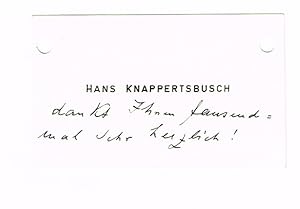 HANS KNAPPERTSBUSCH
dankt Ihnen tausend=
mal sehr herzlich!